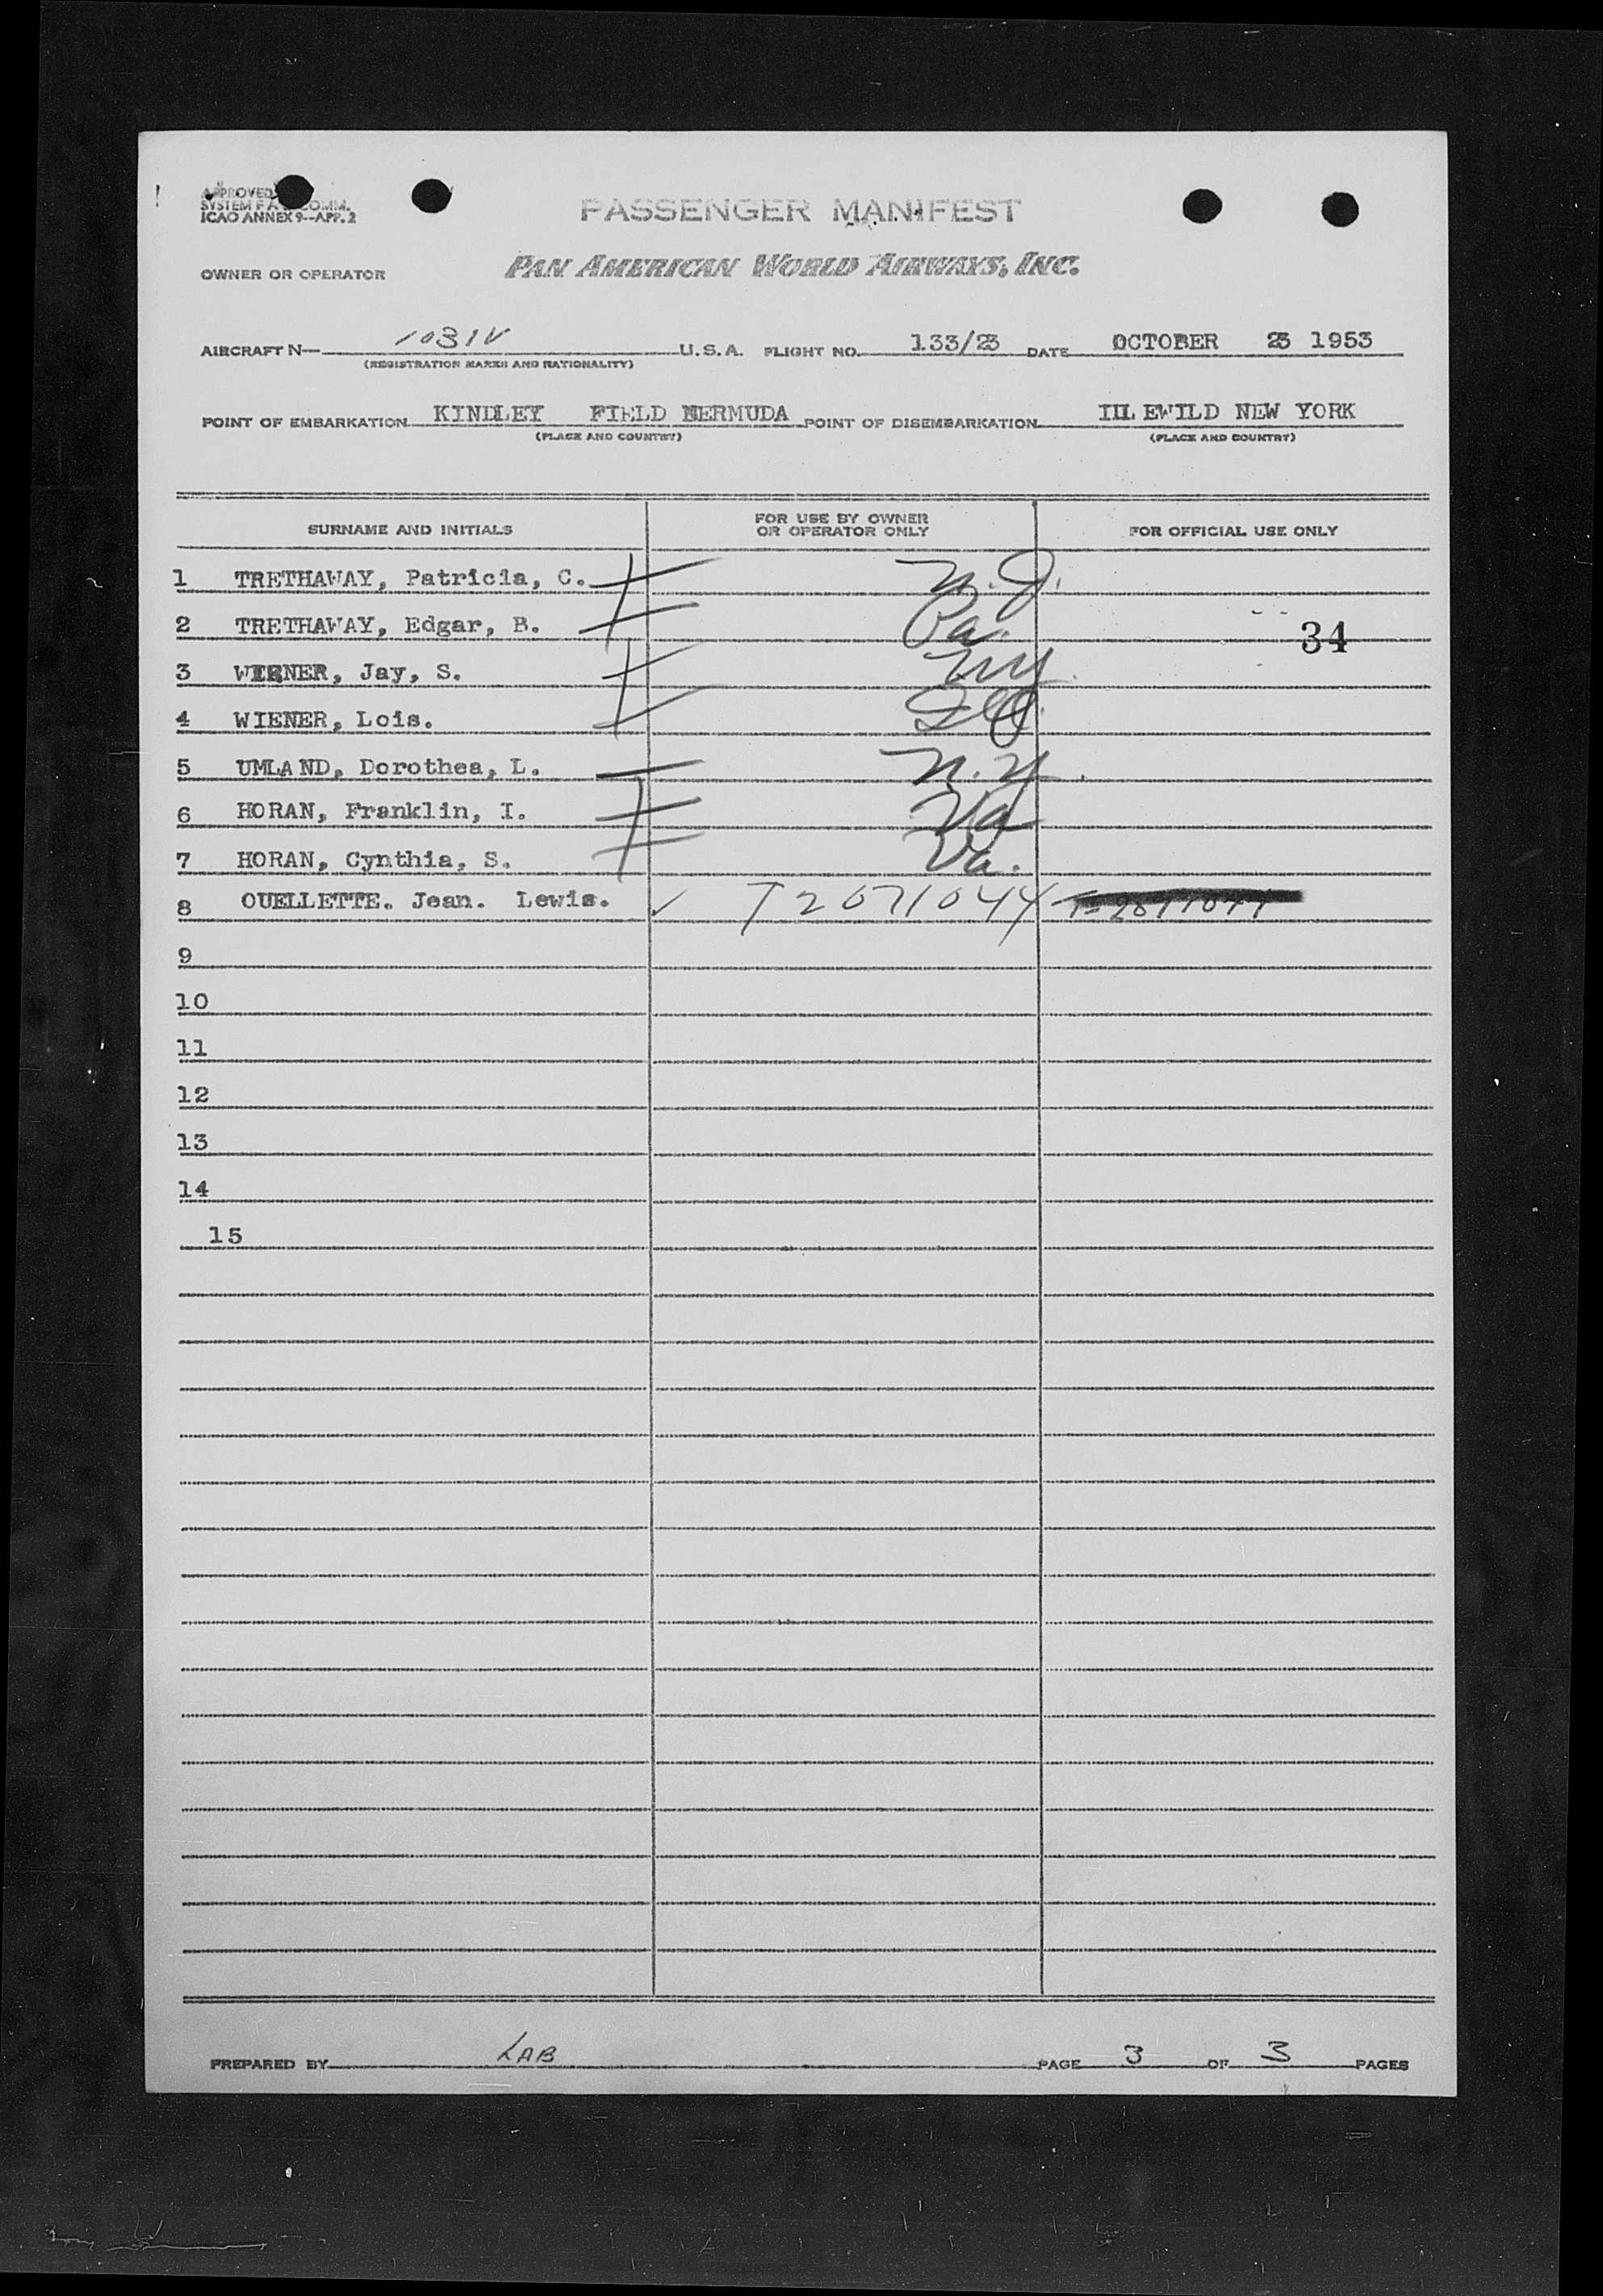 APPROVED
SYSTEM FA COMM.
ICAO ANNEX 9--APP. 2
PASSENGER MANIFEST
OWNER OR OPERATOR PAN AMERICAN WORLD AIRWAYS, INC.
AIRCRAFT N— 1031V U.S.A. FLIGHT NO. 133/23 DATE OCTOBER 23 1953
(REGISTRATION MARKS AND NATIONALITY)
POINT OF EMBARKATION KINDLEY FIELD BERMUDA POINT OF DISEMBARKATION IDLEWILD NEW YORK
(PLACE AND COUNTRY) (PLACE AND COUNTRY)
SURNAME AND INITIALS FOR USE BY OWNER OR OPERATOR ONLY FOR OFFICIAL USE ONLY
1 TRETHAWAY, Patricia, C. N.J.
2 TRETHAWAY, Edgar, B. Pa. 34
3 WIENER, Jay, S. NY
4 WIENER, Lois. Ill.
5 UMLAND, Dorothea, L. N.Y.
6 HORAN, Franklin, I. Va
7 HORAN, Cynthia, S. Va.
8 OUELLETTE. Jean. Lewis. ✓ T2071044
9
10
11
12
13
14
15
PREPARED BY LAB PAGE 3 OF 3 PAGES